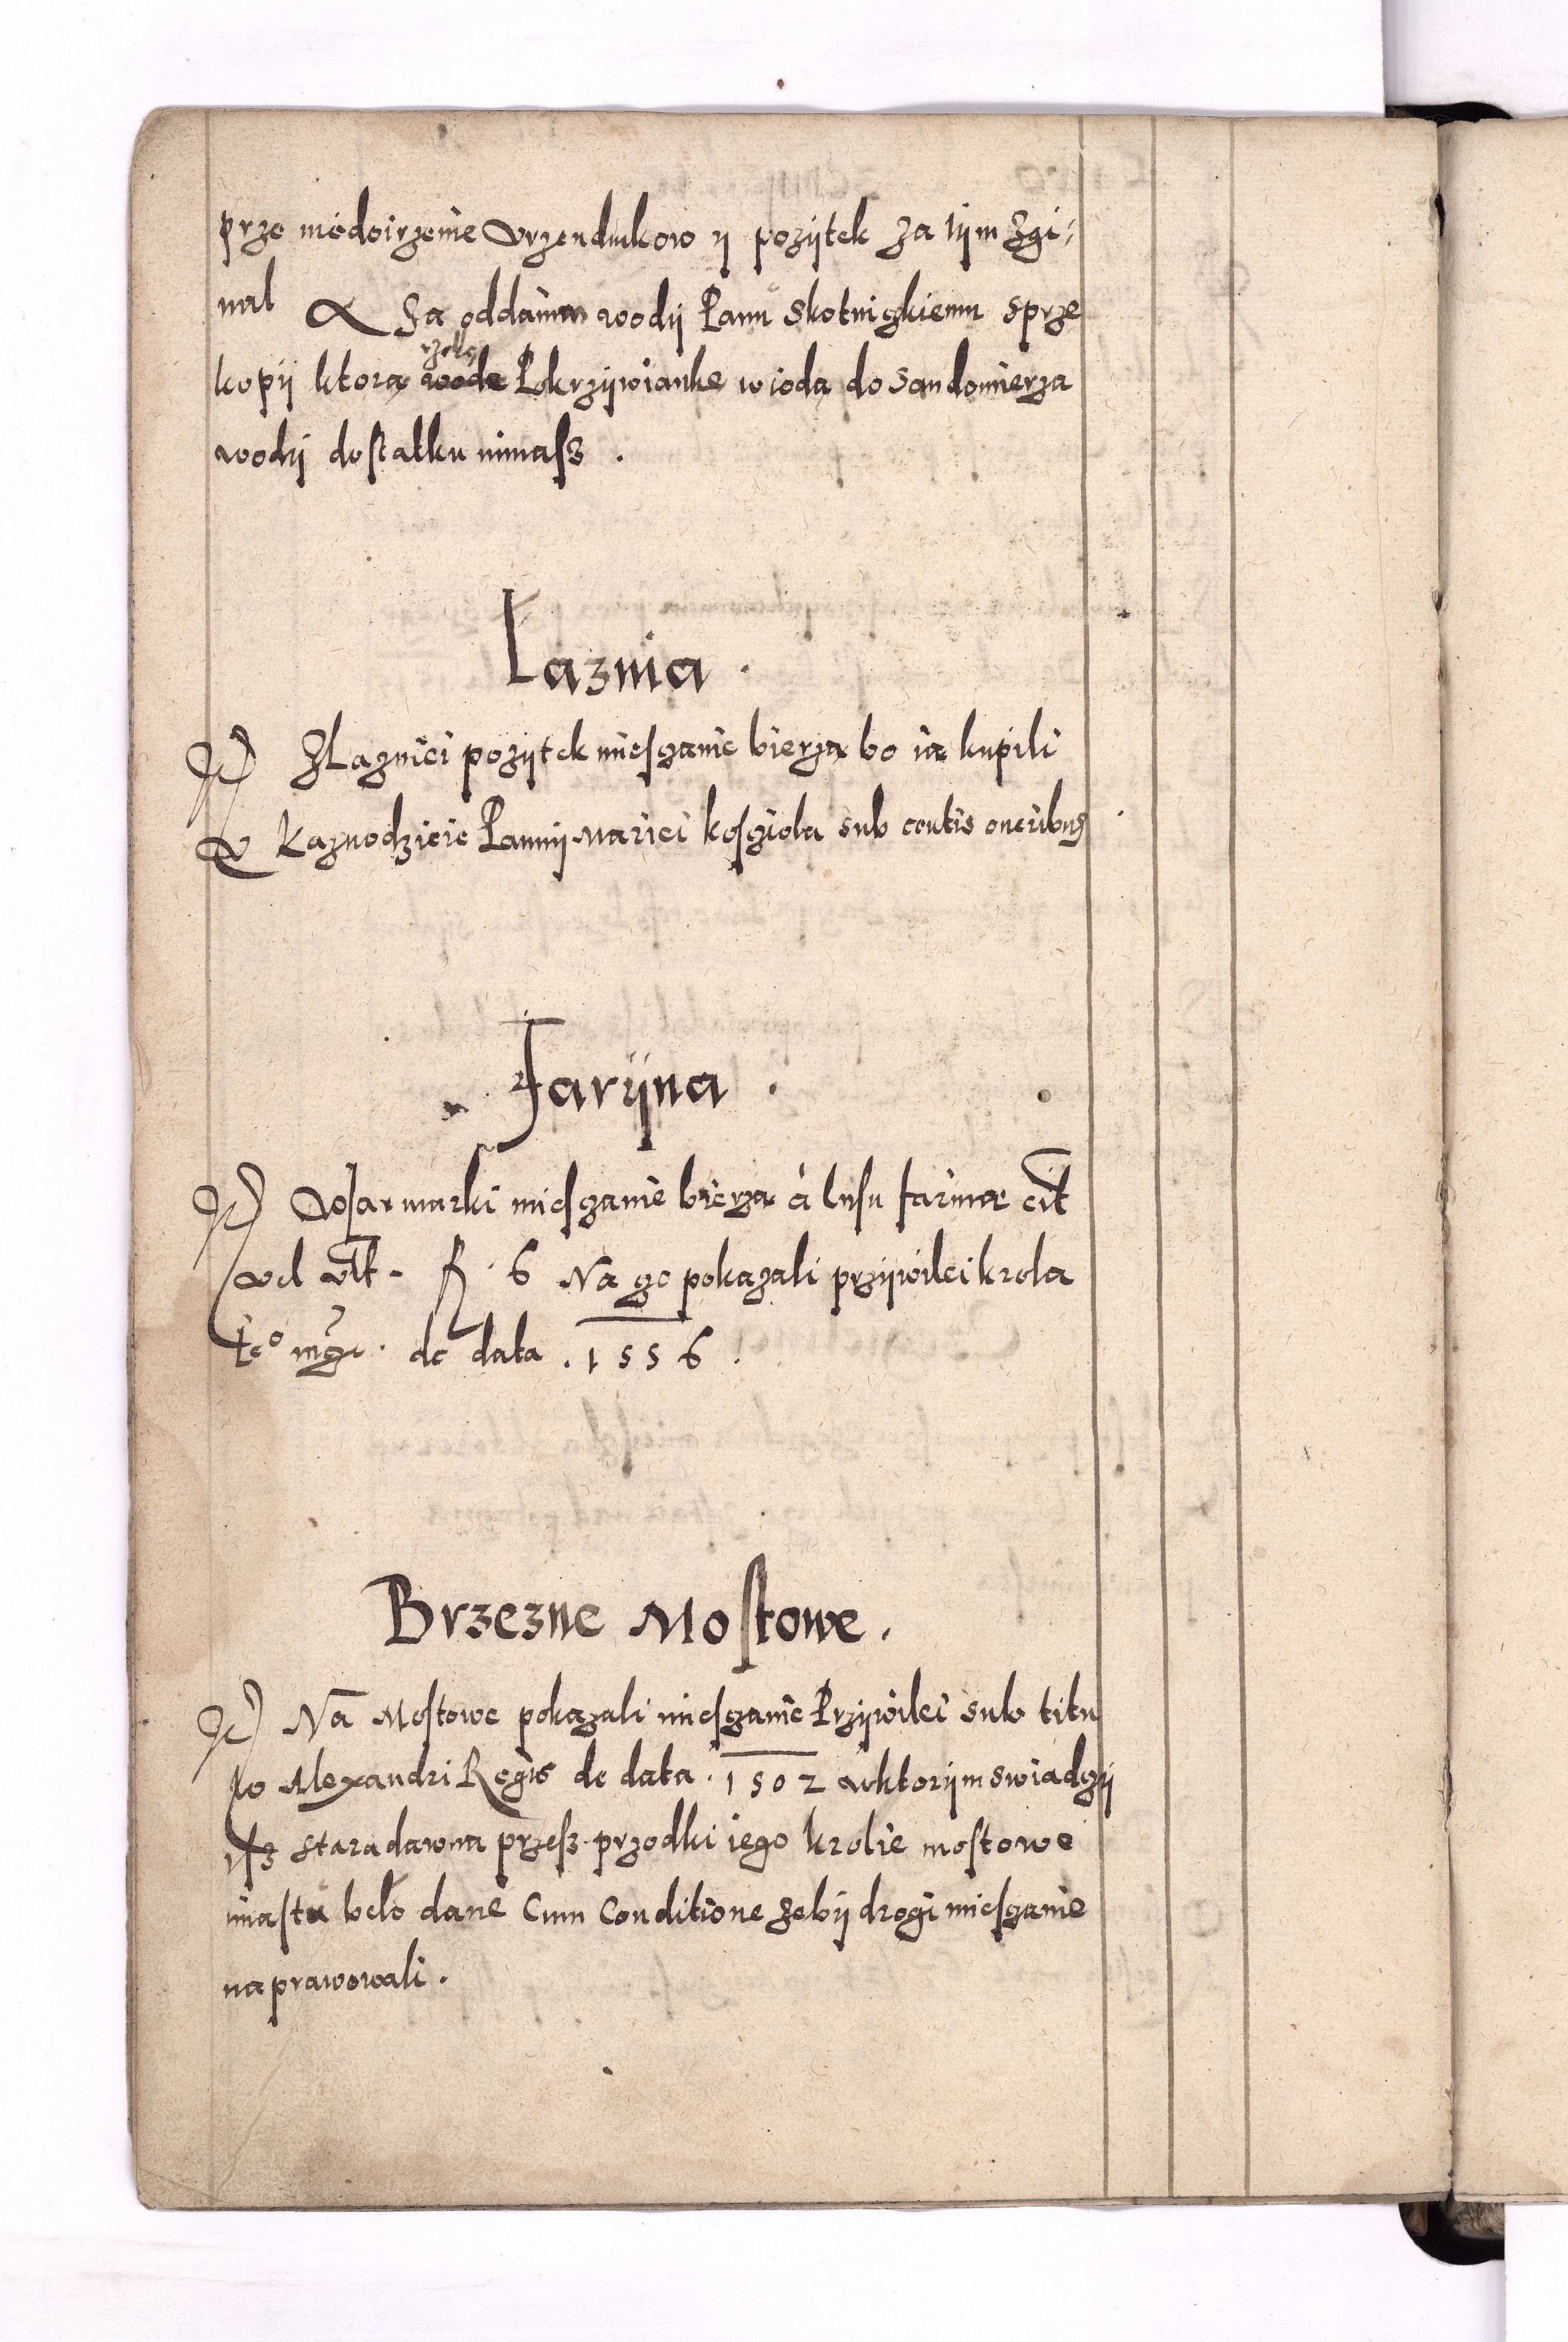 prze niedoirzenie Vrzendnikow y pozijtek za tijm zgi⸗
nal & Za oddanim wodij Panu Skotnigkiemu sprze
rzekę
kopij ktorą wode Pokrzijwianke wiodą do Sandomierza
wodij dostatku nimasz .
Łaznia .
It Z Łazniei pozijtek miesczanie bierzą bo ią kupili
V Kaznodzieie Pannij Mariei kosciola sub certis oneribus
Farijna .
It Vosarmarki miesczanie bierzą à lusu farinae cit
vel vlt. fl. 6 Na go pokazali przijwilei krola
te° mgr . de data . 1556 .
Brzezne Mostowe .
It Na Mostowe pokazali miesczanie Przijwilei sub titu
lo Alexandri Regis de data . 1502 wktorijm swiadczij
ysz staradawna przesz przodki iego krolie mostowe
miastu belo dane Cum Conditione zebij drogi miesczanie
naprawowali .